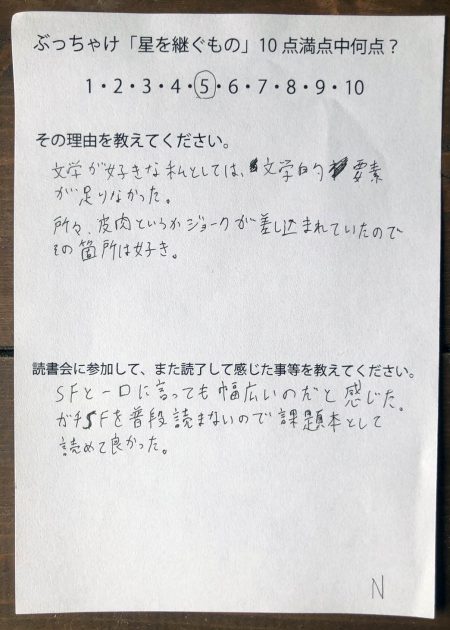 ぶっちゃけ「星を継ぐもの」10点満点中何点？
1・2・3・4・5・6・7・8・9・10
その理由を教えてください。
文学が好きな私としては、文学的要素
が足りなかった。
所々、皮肉というかジョークが差し込まれていたので
その箇所は好き。
読書会に参加して、また読了して感じた事等を教えてください。
SFと一口に言っても幅広いのだと感じた。
ガチSFを普段読まないので課題本として
読めて良かった。
N